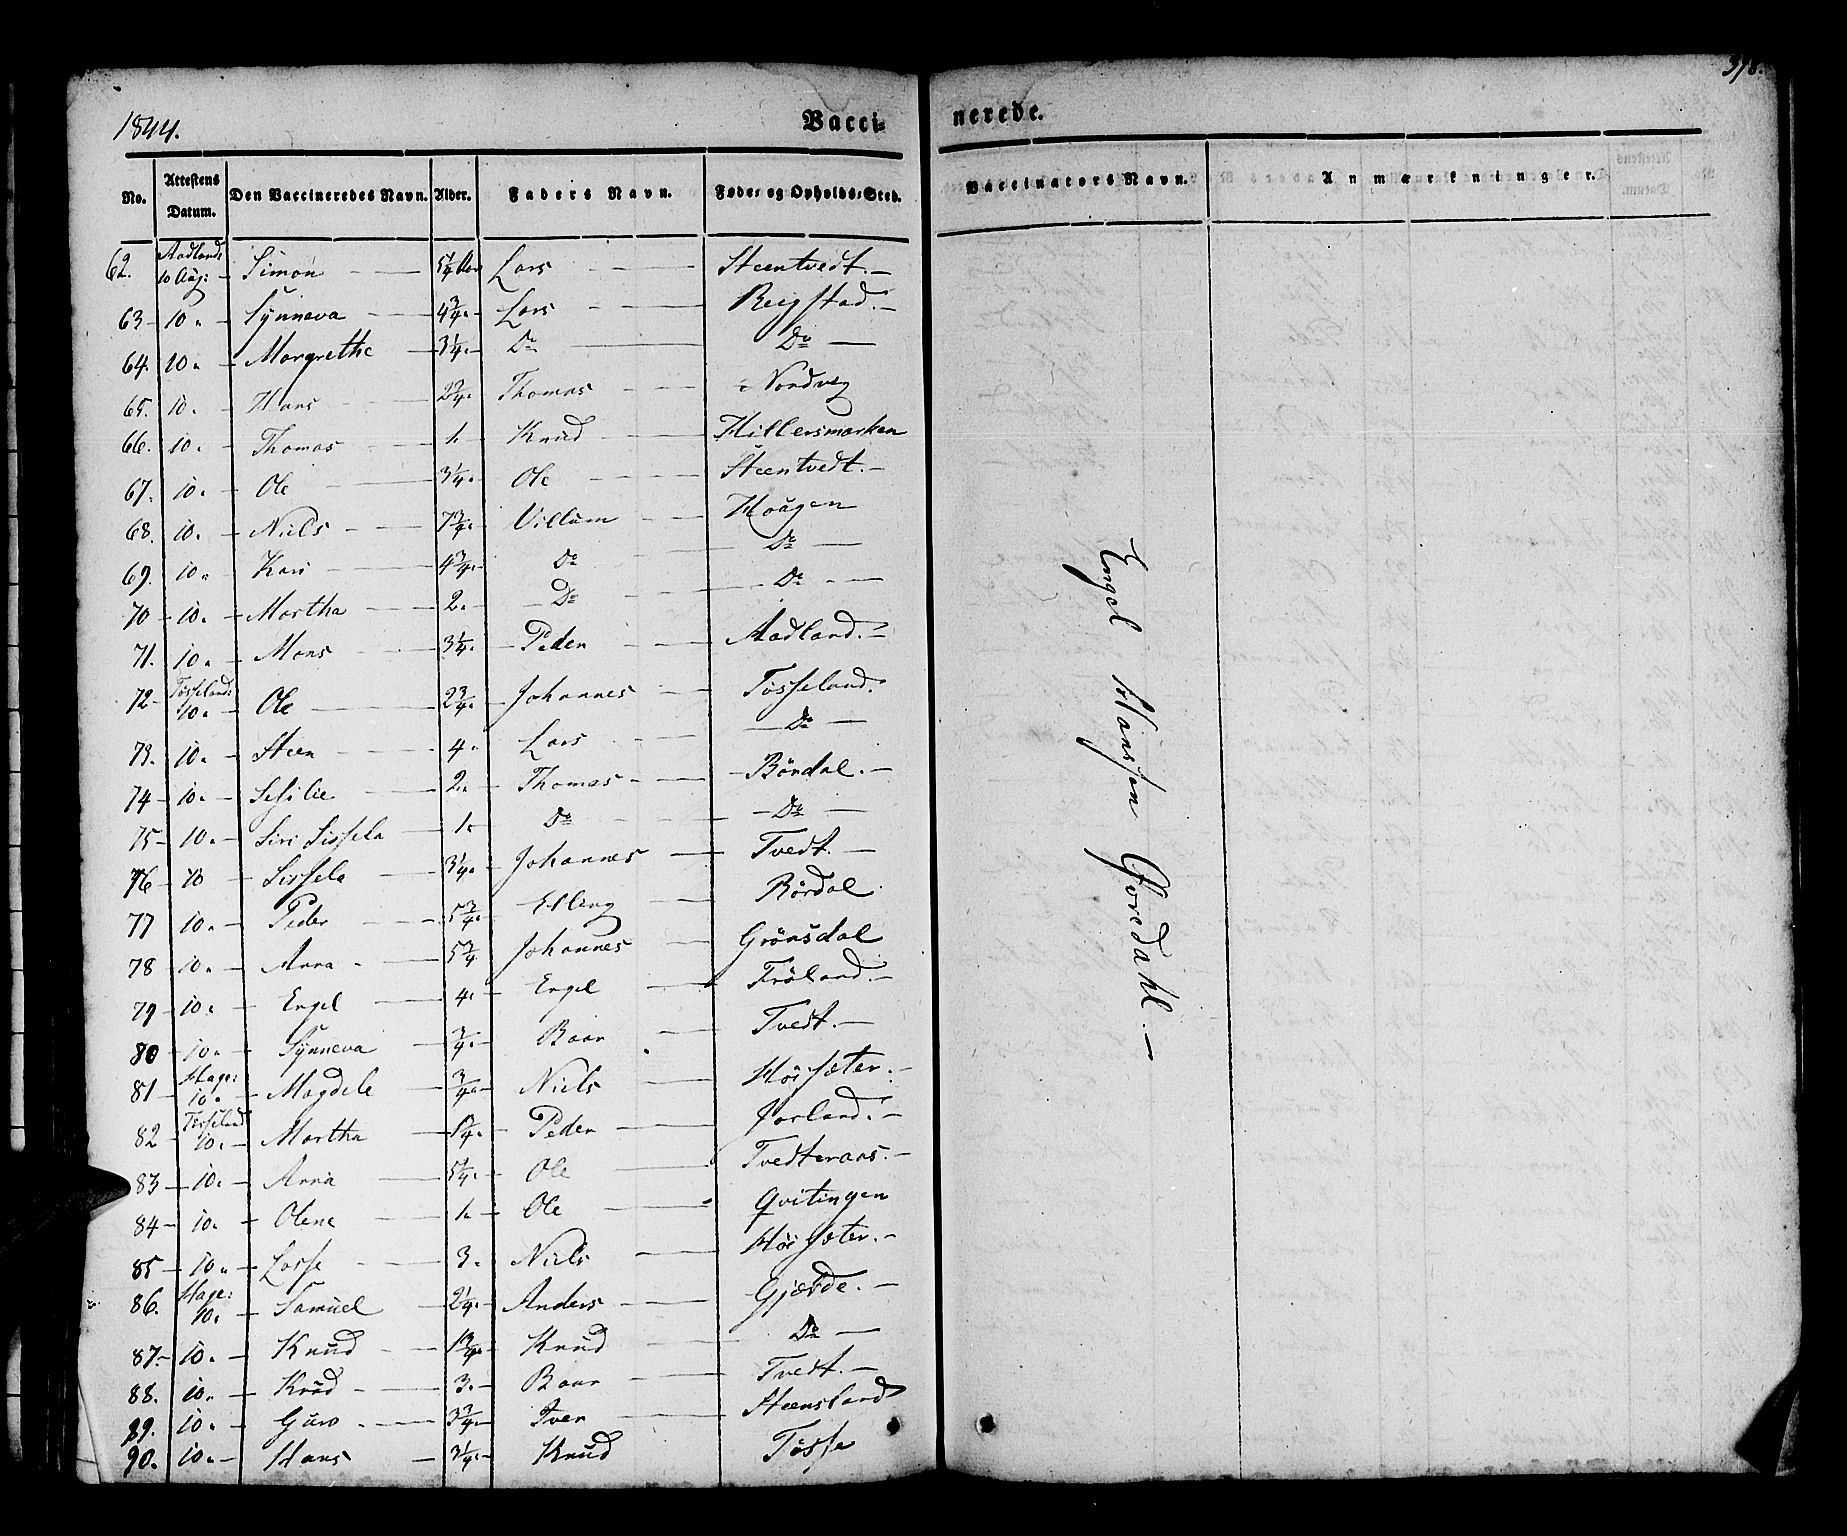 1844.
Vacci-
nerede.
No. Attestens Datum. Den Vaccineredes Navn. Alder. Faders Navn. Føde- og Opholds-Sted. Vaccinators Navn. Anmærkninger.
62. Aadland: 10 Aug: Simon — 5 1/4 Aar Lars — Steentvedt. —
63 10. Synneva — 4 3/4. Lars — Bergstad. —
64. 10. Margrethe — 3 1/4. Do — Do —
65. 10. Hans — 2 3/4. Thomas — Nordvig
66. 10. Thomas — 1. Knud — Hillersmarken
67. 10. Ole — 3 1/4. Ole — Steentvedt. —
68. 10. Niels — 7 3/4. Villum — Haagen
69. 10. Kari — 4 3/4. Do — Do —
70 10. Martha — 2. Do — Do —
71. 10. Mons — 3 1/4. Peder — Aadland. —
72 Tøsseland: 10. Ole — 2 3/4. Johannes — Tøsseland.
73. 10. Steen — 4. Lars — Do —
74 10. Sesilie — 2. Thomas — Børdal. —
75 10. Siri Sissela — 1. Do — Do —
76 10 Sissela — 3 1/4. Johannes — Tvedt. —
77 10. Peder — 5 3/4. Elling — Børdal.
78 10. Anna — 5 3/4 Johannes — Grønsdal
79 10. Engel — 4. Engel — Frøland. —
80 10. Synneva — 3/4. Baar — Tvedt. —
81 Hage: 10. Magdele — 3/4. Niels — Høisæter. —
82 Tøsseland 10. Martha — 1 1/4. Peder — Jarland. —
83 10. Anna — 5 1/4. Ole — Tvedteraas. —
84 10. Olene — 1. Ole — Qvitingen
85 10. Lasse — 3. Niels — Høisæter. —
86. Hage: 10. Samuel — 2 1/4. Anders — Gjærde. —
87. 10. Knud — 1 3/4. Knud — Do —
88. 10. Knud — 3. Baar — Tvedt. —
89. 10. Guro — 3 3/4. Iver — Steensland
90. 10. Hans — 3 1/4. Knud — Tøsse
Engel Hansen Gjøredahl. —